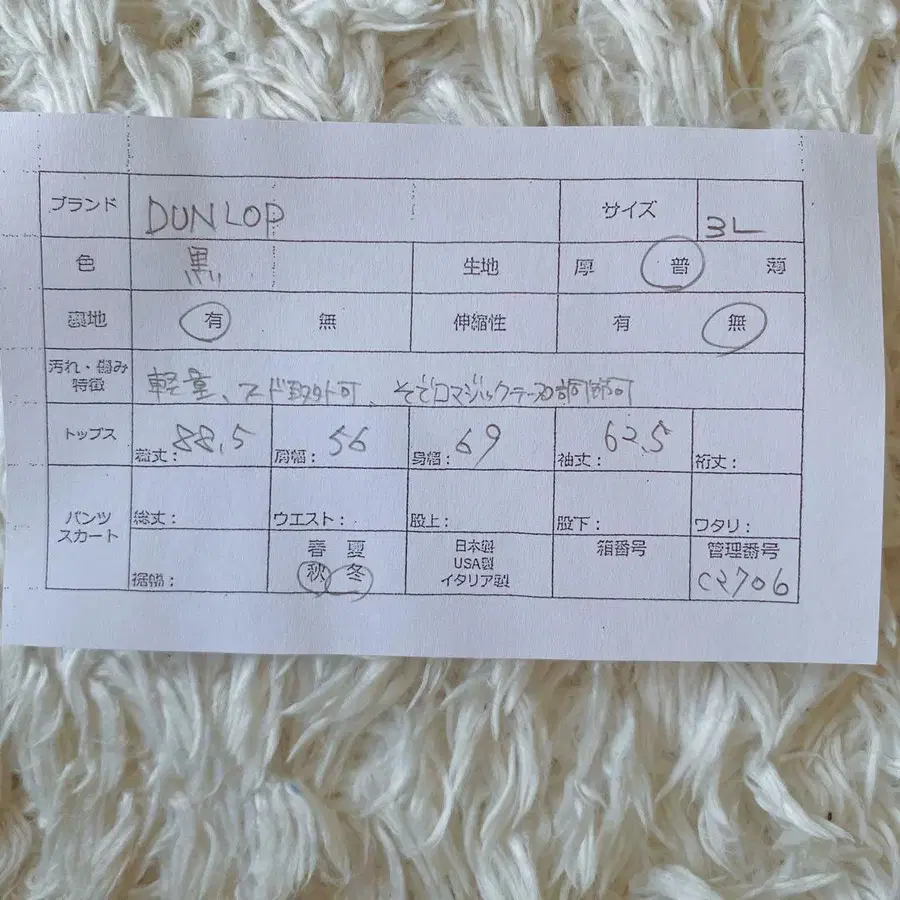 ブランド DUNLOP サイズ 3L
色 黒 生地 厚 普 薄
裏地 有 無 伸縮性 有 無
汚れ・傷み
特徴 軽量、フード取外し可、そで口マジックテープ調節可
トップス 着丈: 88.5 肩幅: 56 身幅: 69 袖丈: 62.5 裄丈:
パンツ
スカート 総丈: ウエスト: 股上: 股下: ワタリ:
裾幅: 春 夏 秋 冬 日本製 USA製 イタリア製 箱番号 管理番号
C2706